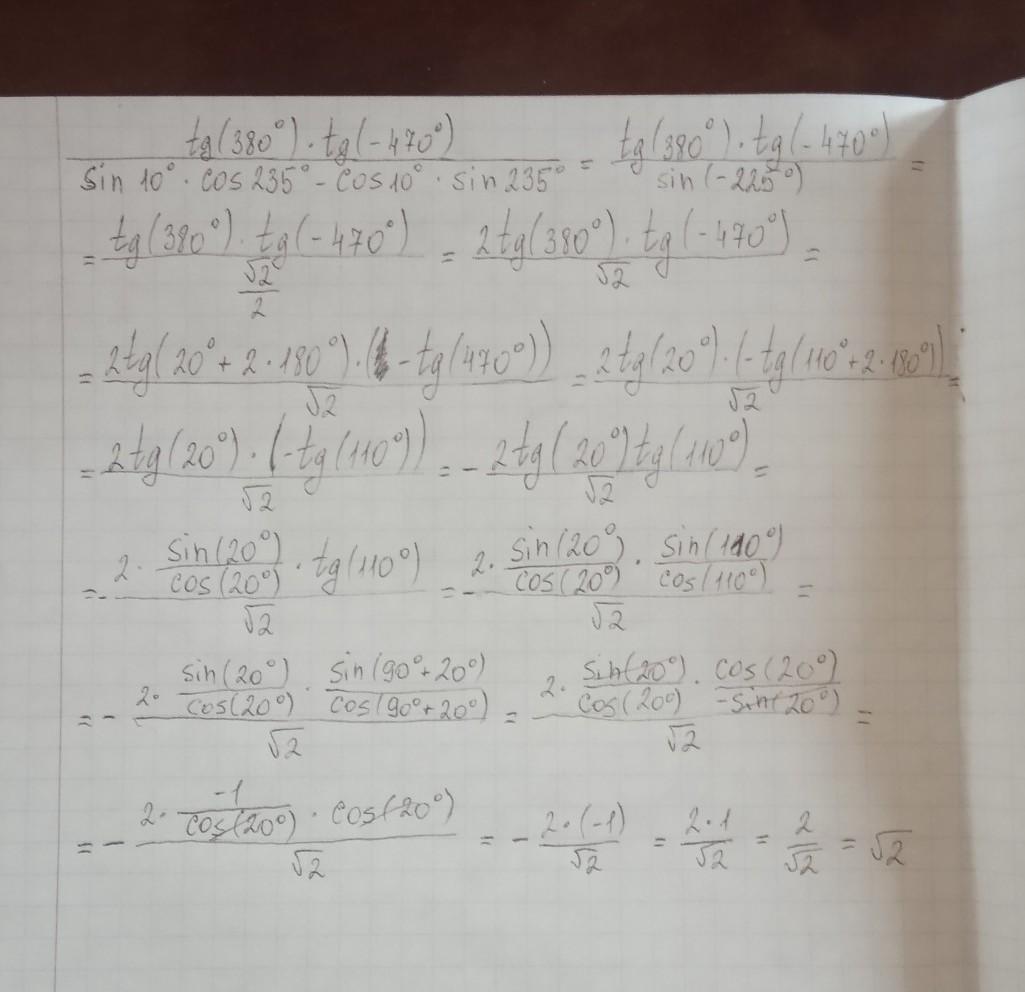 tg(380°)·tg(-470°) / sin 10°·cos 235° - cos 10°·sin 235° = tg(380°)·tg(-470°) / sin(-225°) =
= tg(380°)·tg(-470°) / √2/2 = 2tg(380°)·tg(-470°) / √2 =
= 2tg(20°+2·180°)·(-tg(470°)) / √2 = 2tg(20°)·(-tg(110°+2·180°)) / √2 =
= 2tg(20°)·(-tg(110°)) / √2 = - 2tg(20°)tg(110°) / √2 =
= - 2· sin(20°)/cos(20°) · tg(110°) / √2 = - 2· sin(20°)/cos(20°) · sin(110°)/cos(110°) / √2 =
= - 2· sin(20°)/cos(20°) · sin(90°+20°)/cos(90°+20°) / √2 = 2· sin(20°)/cos(20°) · cos(20°)/-sin(20°) / √2 =
= - 2· -1/cos(20°) · cos(20°) / √2 = - 2·(-1) / √2 = 2·1 / √2 = 2 / √2 = √2